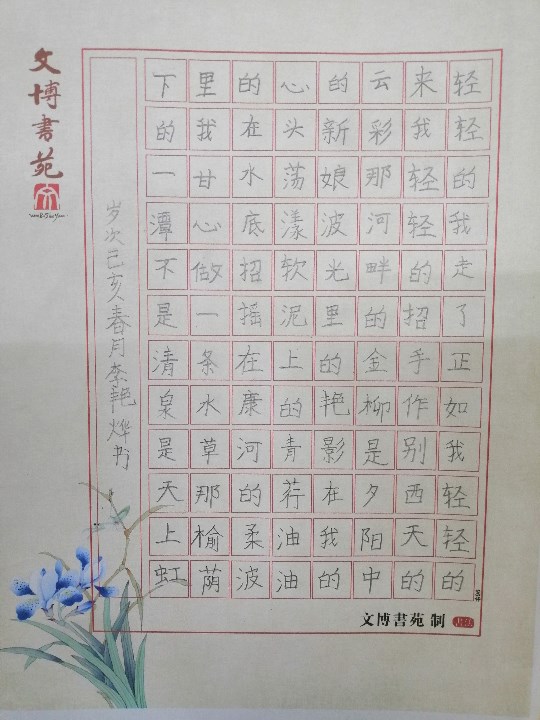 文博書苑
轻轻的我走了正如我轻轻的
来我轻轻的招手作别西天的
云彩那河畔的金柳是夕阳中
的新娘波光里的艳影在我的
心头荡漾软泥上的青荇油油
的在水底招摇在康河的柔波
里我甘心做一条水草那榆荫
下的一潭不是清泉是天上虹
岁次己亥春月李艳烨书
文博書苑 制